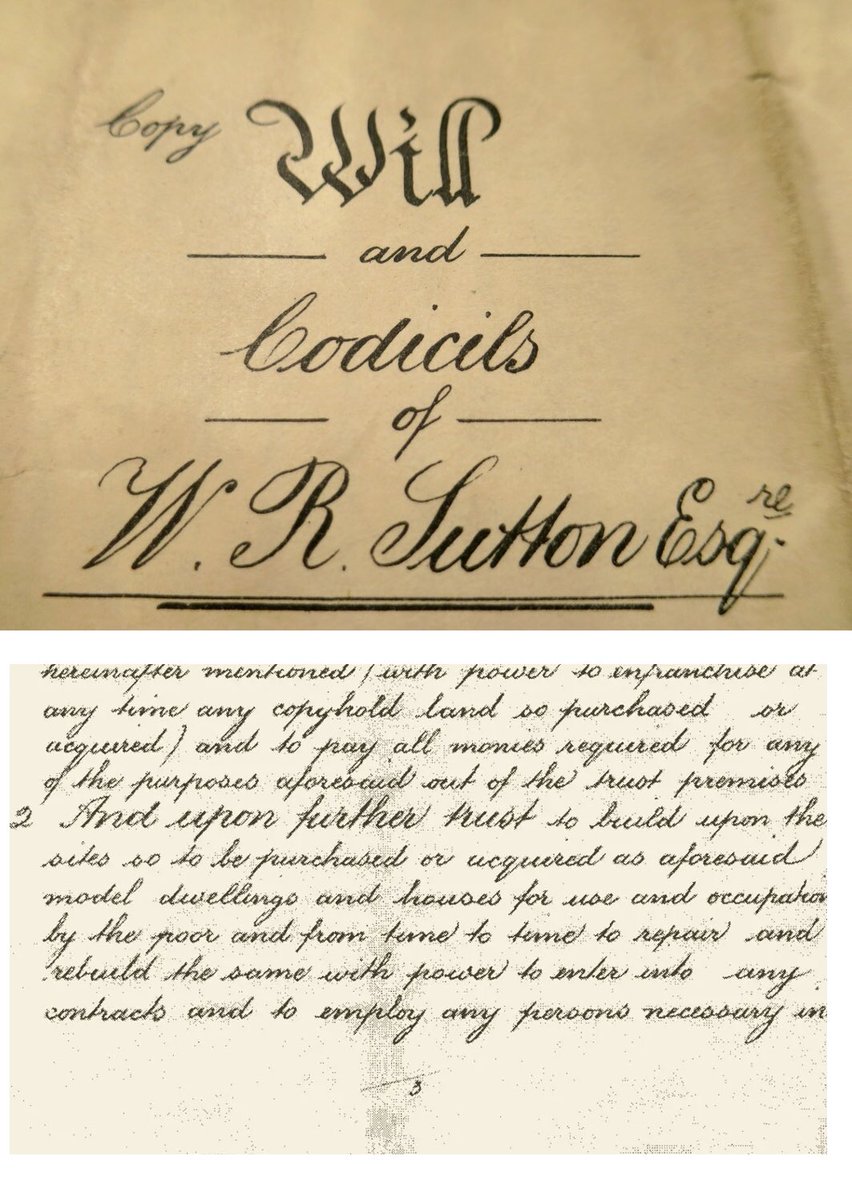 Copy Will
and
Codicils
of
W. R. Sutton Esqre.
hereinafter mentioned) with power to enfranchise at
any time any copyhold land so purchased or
acquired) and to pay all monies required for any
of the purposes aforesaid out of the trust premises
2 And upon further trust to build upon the
sites so to be purchased or acquired as aforesaid
model dwellings and houses for use and occupation
by the poor and from time to time to repair and
rebuild the same with power to enter into any
contracts and to employ any persons necessary in
3